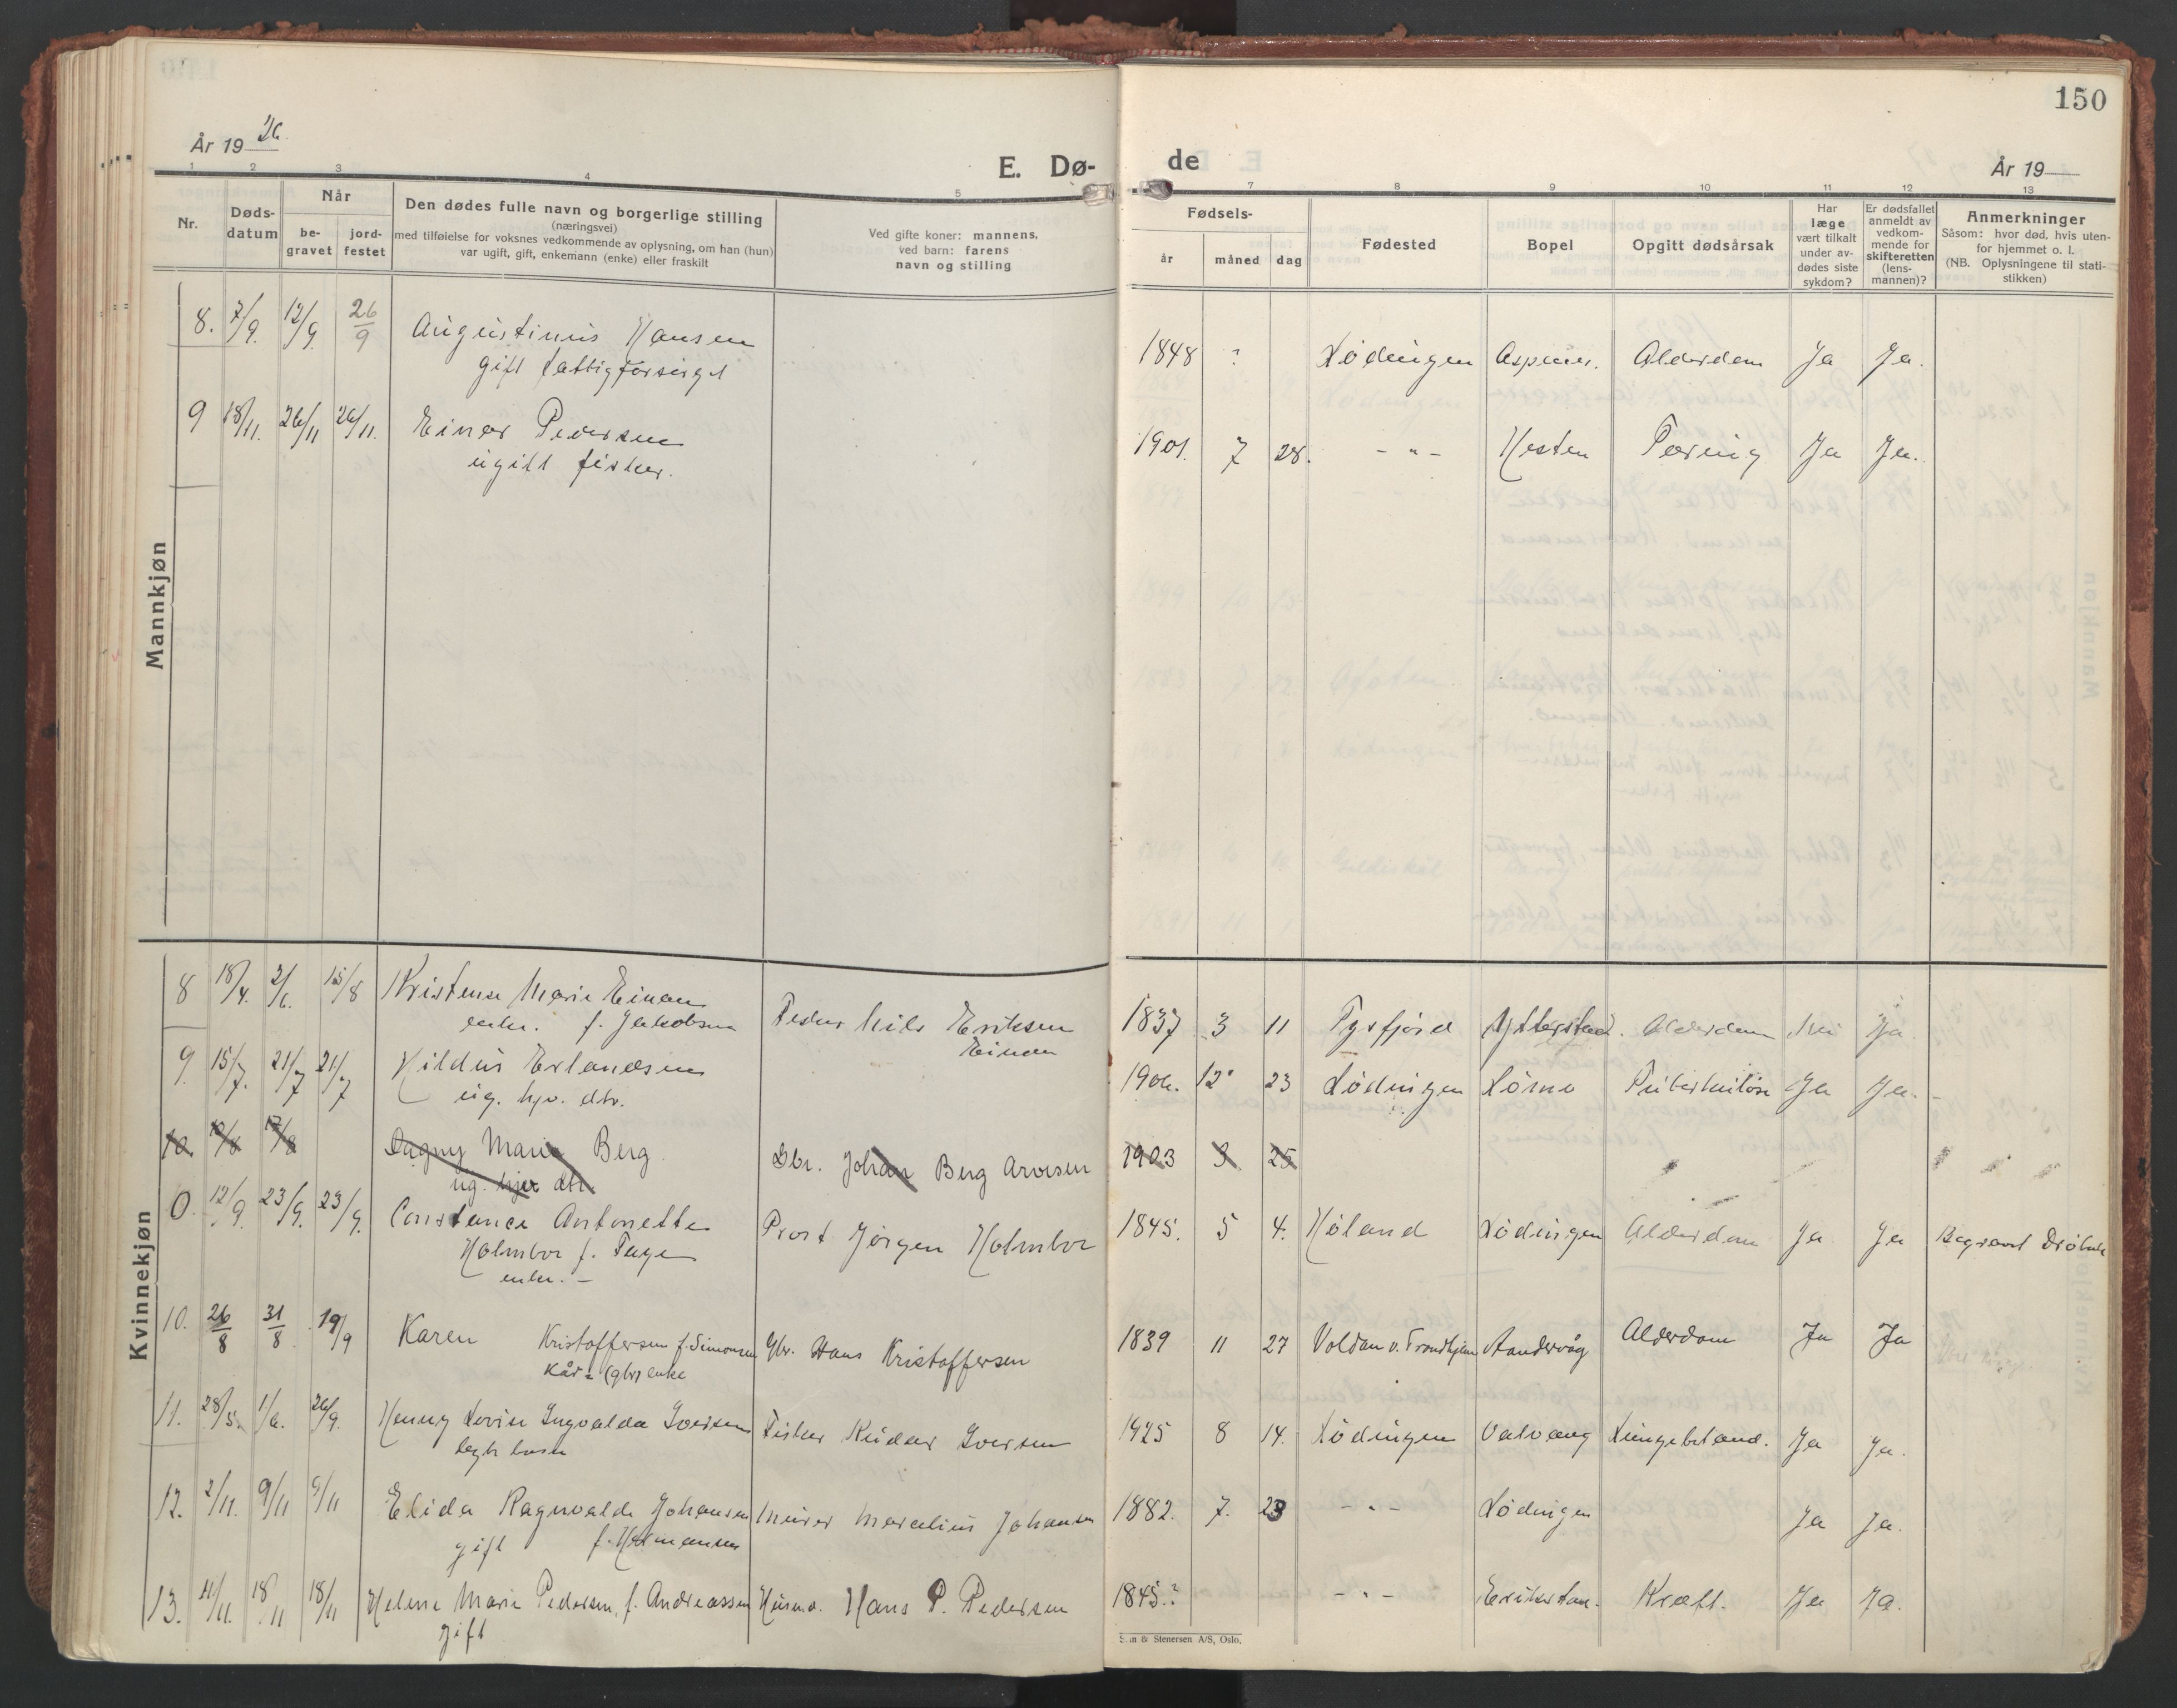 150
År 19 26.
E. Dø-
de
År 19
1 2 3 4 5
7 8 9 10 11 12 13
Nr.
Døds-
datum
Når
be-
gravet
jord-
festet
Den dødes fulle navn og borgerlige stilling
(næringsvei)
med tilføielse for voksnes vedkommende av oplysning, om han (hun)
var ugift, gift, enkemann (enke) eller fraskilt
Ved gifte koner: mannens,
ved barn: farens
navn og stilling
Fødsels-
år
måned
dag
Fødested
Bopel
Opgitt dødsårsak
Har
læge
vært tilkalt
under av-
dødes siste
sykdom?
Er dødsfallet
anmeldt av
vedkom-
mende for
skifteretten
(lens-
mannen)?
Anmerkninger
Såsom: hvor død, hvis uten-
for hjemmet o. l.
(NB. Oplysningene til stati-
stikken)
Mannkjøn
8. 7/9. 12/9. 26/9 Augustinus Hansen 1848 ? Lødingen Aspenes. Alderdom Ja Ja.
gift fattigforsørget
9 18/11. 26/11 26/11. Einar Pedersen 1901. 7 28. - " - Nesten Tæring Ja Ja.
ugift fisker.
Kvinnekjøn
8 18/4. 2/6. 15/8 Kristense Marie Einan Fisker Nils Eriksen 1837 3 11 Tysfjord Ytterstad. Alderdom Nei Ja
enke. f. Jakobsen Einan
9. 15/7. 21/7 21/7 Hildur Erlandsen 1906. 12 23 Lødingen Løsno Tuberkuløse Ja Ja.
ug. hjv. dtr.
10 10/8 17/8 Dagny Marie Berg Gbr. Johan Berg Arvesen 1903 3 25
ug. hjv dtr
0. 12/9. 23/9. 23/9. Constance Antonette Prost Jørgen Holmboe 1845. 5 4. Høland Lødingen Alderdom Ja Ja Begravet Drøbak
Holmboe f. Fage
enke. -
10. 26/8 31/8 19/9 Karen Kristoffersen f. Simonsen Gbr. Hans Kristoffersen 1839 11 27 Voldan v. Trondhjem Aandervåg Alderdom Ja Ja
Kår= (gbr) enke
11. 28/5. 1/6. 26/9. Henny Lovise Ingvalda Iversen Fisker Reidar Iversen 1925 8 14. Lødingen Valvaag Lungebetænd. Ja Ja.
12. 2/11. 9/11 9/11 Elida Ragnvalda Johansen Murer Marelius Johansen 1882. 7. 23 - " - Lødingen Ja Ja.
gift f. Hermansen
13. 11/11. 18/11 18/11 Helene Marie Pedersen, f. Andreassen Husm. Hans P. Pedersen 1845.? - " - Erikstan. Kræft. Ja Ja.
gift
& Stenersen A/S, Oslo.